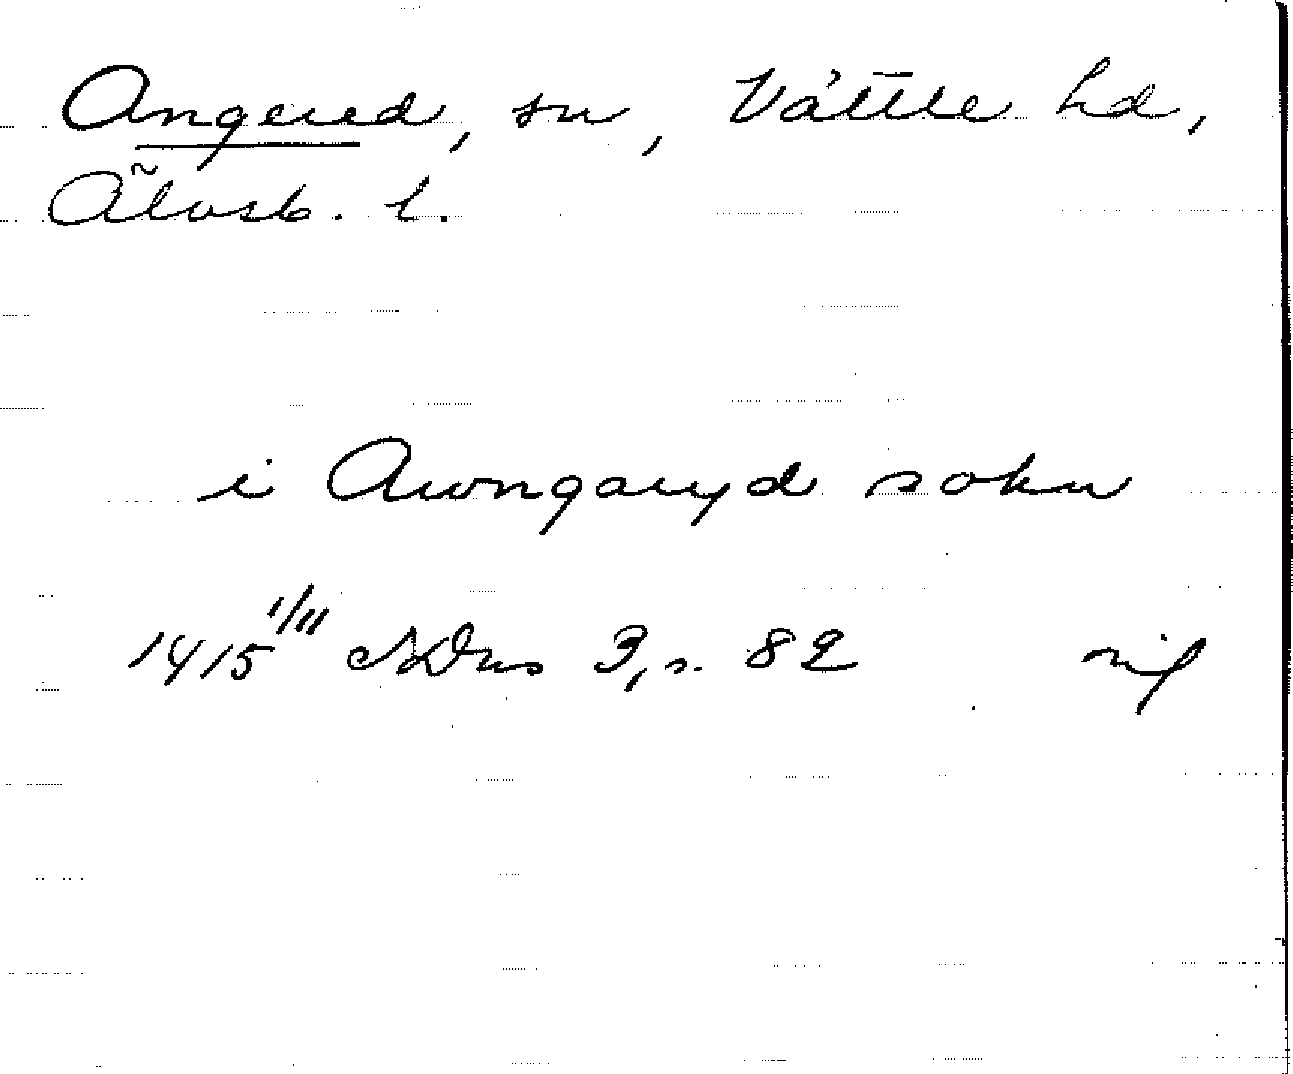 Angered, sn, Vättle hd,
Älvsb. l.
i Awngaryd sokn
1415 1/11 SDns 3, s. 82